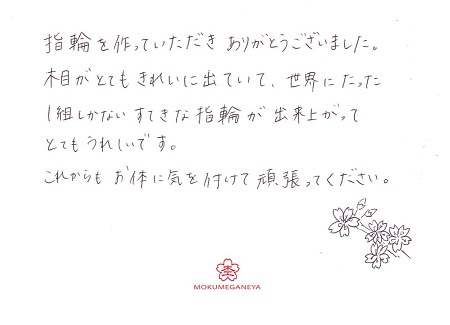 指輪を作っていただき ありがとうございました。
木目がとてもきれいに出ていて、世界にたった
1組しかない すてきな指輪が 出来上がって
とてもうれしいです。
これからも お体に気を付けて 頑張ってください。
MOKUMEGANEYA